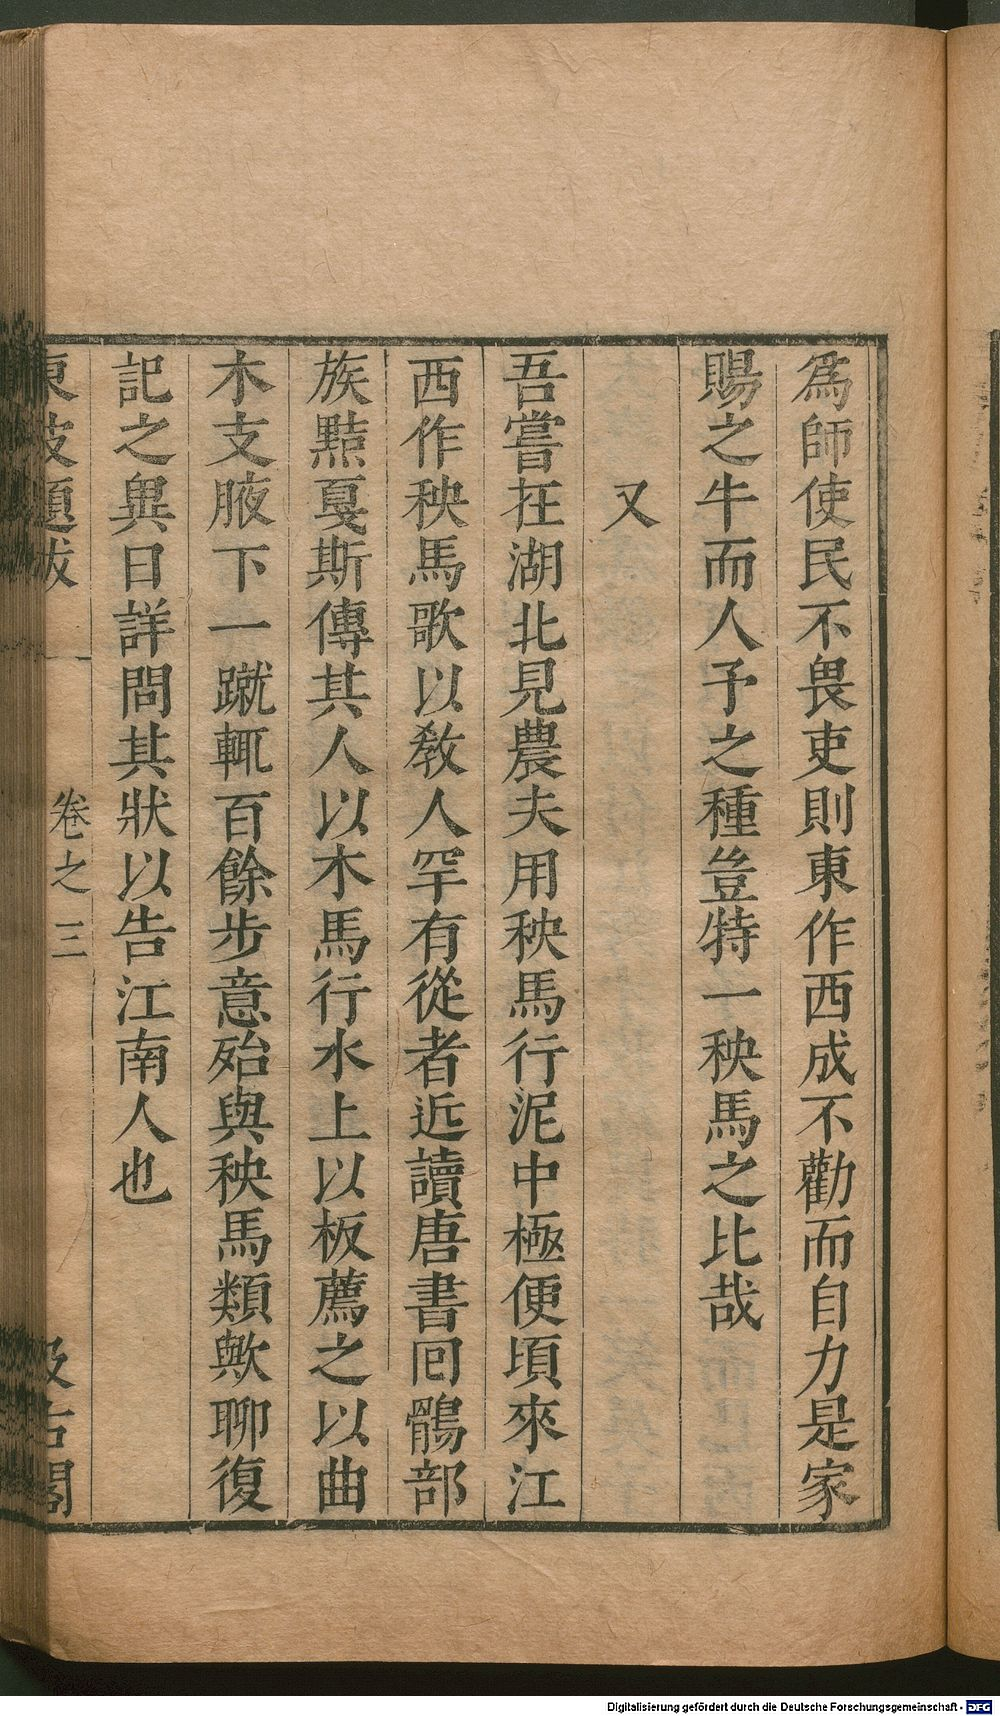 爲師使民不畏吏則東作西成不勸而自力是家
賜之牛而人予之種豈特一秧馬之比哉
又
吾嘗在湖北見農夫用秧馬行泥中極便頃來江
西作秧馬歌以教人罕有從者近讀唐書回鶻部
族黠戛斯傳其人以木馬行水上以板薦之以曲
木支腋下一蹴輒百餘步意殆與秧馬類歟聊復
記之異日詳問其狀以告江南人也
東坡題跋 卷之三 汲古閣
Digitalisierung gefördert durch die Deutsche Forschungsgemeinschaft - DFG